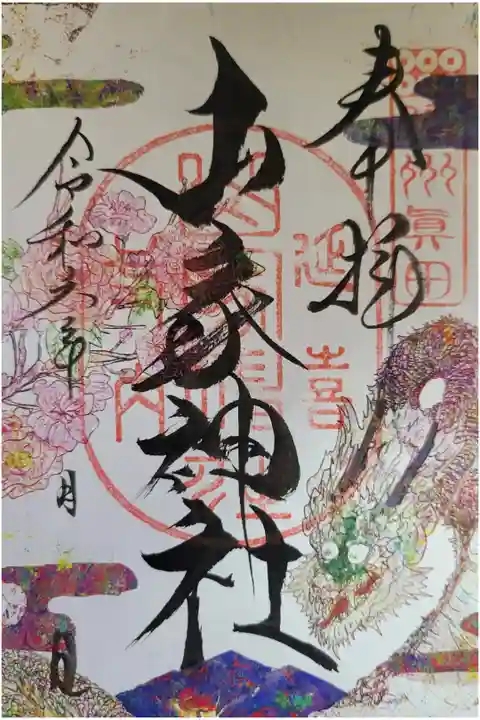 奉拝
信州眞田
延喜式内
山家神社
令和六年
月
日